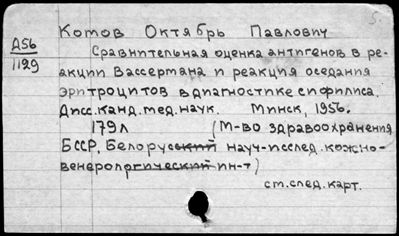 5.
Котов Октябрь Павлович
Д56
1129
Сравнительная оценка антигенов в ре-
акции Вассермана и реакция оседания
эритроцитов в диагностике сифилиса.
Дисс. канд. мед. наук. Минск, 1956.
179л (М-во здравоохранения
БССР, Белорусский науч-исслед. кожно-
венерологический ин-т)
см. след. карт.